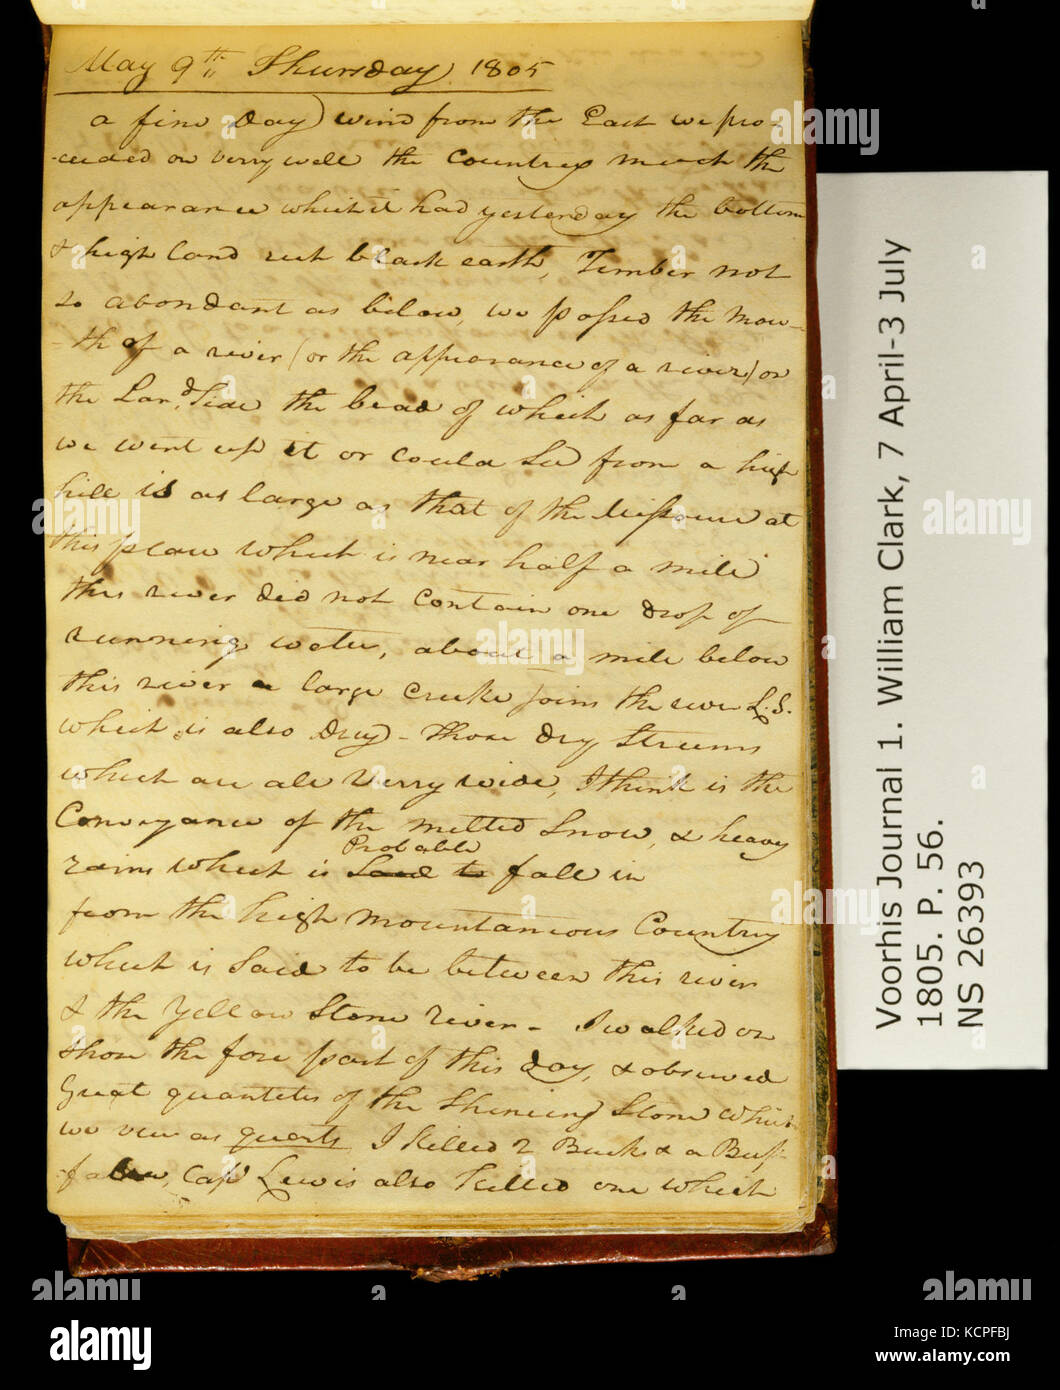 May 9th Thursday 1805
a fine Day) wind from the East we pro
-ceeded on verry well the Countrey much the
appearance which it had yesterday the bottom
& high land rich black earth, Timber not
So abondant as below, we passed the mou-
-th of a river (or the appearance of a river) on
the Lard. Side the bead of which as far as
we went up it or could See from a high
hill is as large as that of the Missouri at
this place which is near half a mile
this river did not Contain one drop of
running water, about a mile below
this river a large Creeke joins the river L. S.
which is also Dry - those dry Streams
which are all verry wide, I think is the
Conveyance of the melted Snow, & heavy
Probable
rains which is Said to fall in
from the high mountanious Countrey
which is Said to be between this river
& the Yellow Stone river - I walked on
Shore the fore part of this day, & observed
Great quantites of the Shineing Stone which
we view as quarts I killed 2 Bucks & a Buf-
-falow, Capt Lewis also killed one which
Voorhis Journal 1. William Clark, 7 April-3 July
1805. P. 56.
NS 26393
alamy
a
alamy
Image ID: KCPFBJ
www.alamy.com